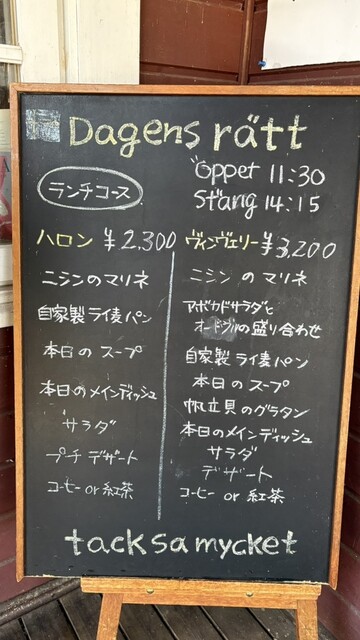 Dagens rätt
ランチコース
öppet 11:30
Stang 14:15
ハロン ¥2,300
ニシンのマリネ
自家製ライ麦パン
本日のスープ
本日のメインディッシュ
サラダ
プチデザート
コーヒー or 紅茶
ヴィンヴェリー ¥3,200
ニシンのマリネ
アボカドサラダと
オードブルの盛り合わせ
自家製ライ麦パン
本日のスープ
帆立貝のグラタン
本日のメインディッシュ
サラダ
デザート
コーヒー or 紅茶
tack sa mycket